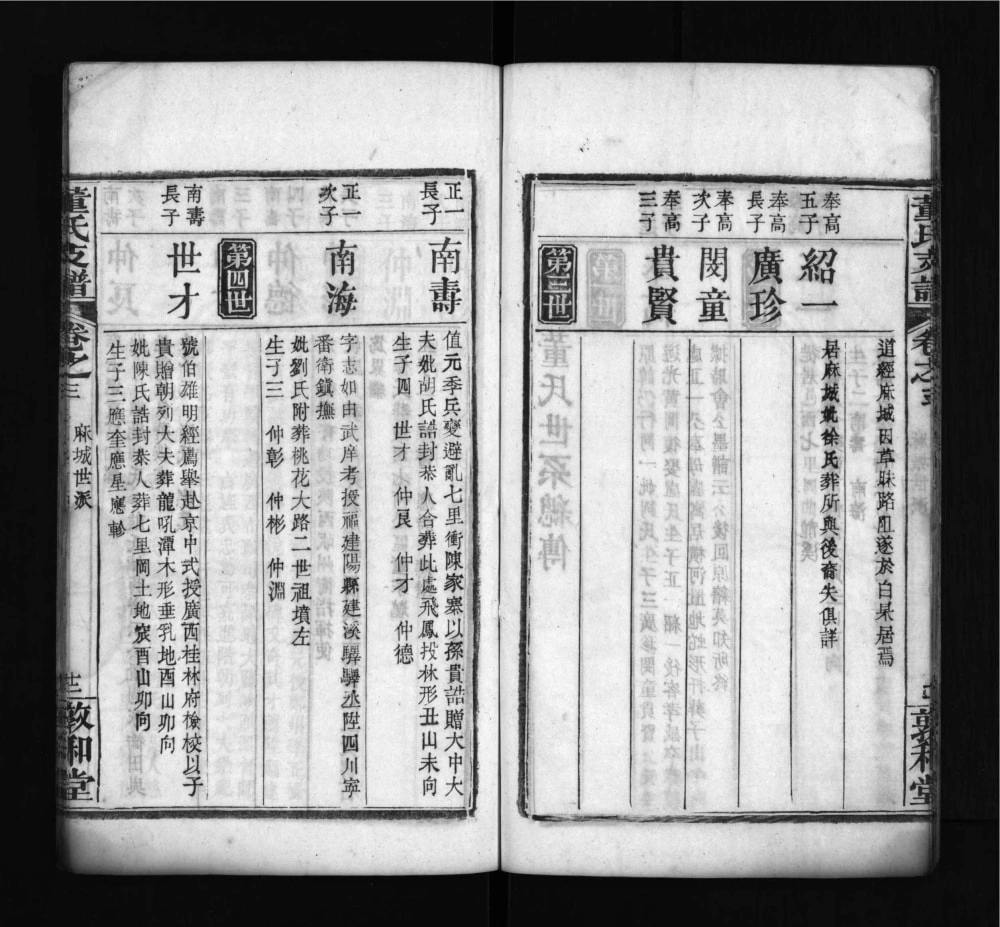 道經麻城因草昧路阻遂於白杲居焉
奉高
五子
紹一
居麻城妣徐氏葬所與後裔失俱詳
奉高
長子
廣珍
奉高
次子
閔童
奉高
三子
貴賢
第三世
正一
長子
南壽
值元季兵變避亂七里衝陳家寨以孫貴誥贈大中大
夫妣胡氏誥封恭人合葬此處飛鳳投林形丑山未向
生子四 世才 仲良 仲才 仲德
正一
次子
南海
字志如由武庠考授福建陽縣建溪驛丞陞四川寧
番衛鎭撫
妣劉氏附葬桃花大路二世祖墳左
生子三 仲彰 仲彬 仲淵
第四世
南壽
長子
世才
號伯雄明經薦舉赴京中式授廣西桂林府檢校以子
貴贈朝列大夫葬龍吼潭木形垂乳地酉山卯向
妣陳氏誥封恭人葬七里岡土地㝠酉山卯向
生子三應奎應星應軫
董氏支譜
卷之三
麻城世派
廿二
敦和堂